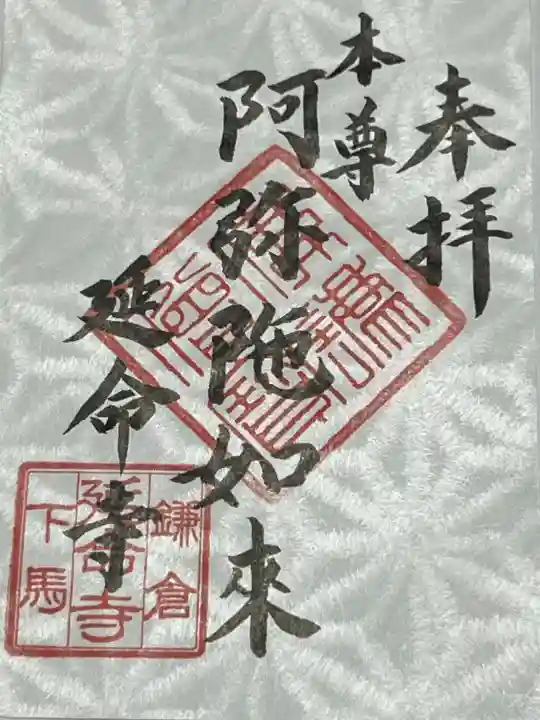 奉拝
本尊
阿弥陀如來
延命寺
鎌倉
延命寺
下馬